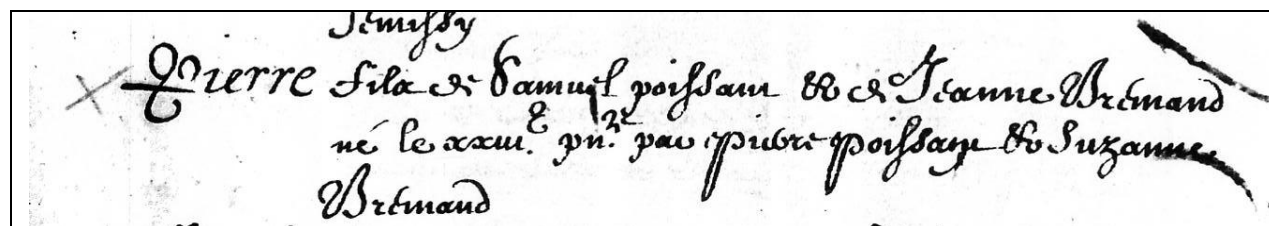 Jemissy
Pierre fils de Samuel poissant & de Jeanne Bremand
né le xxiii.e pñ.té par Pierre poissant & Suzanne
Bremand